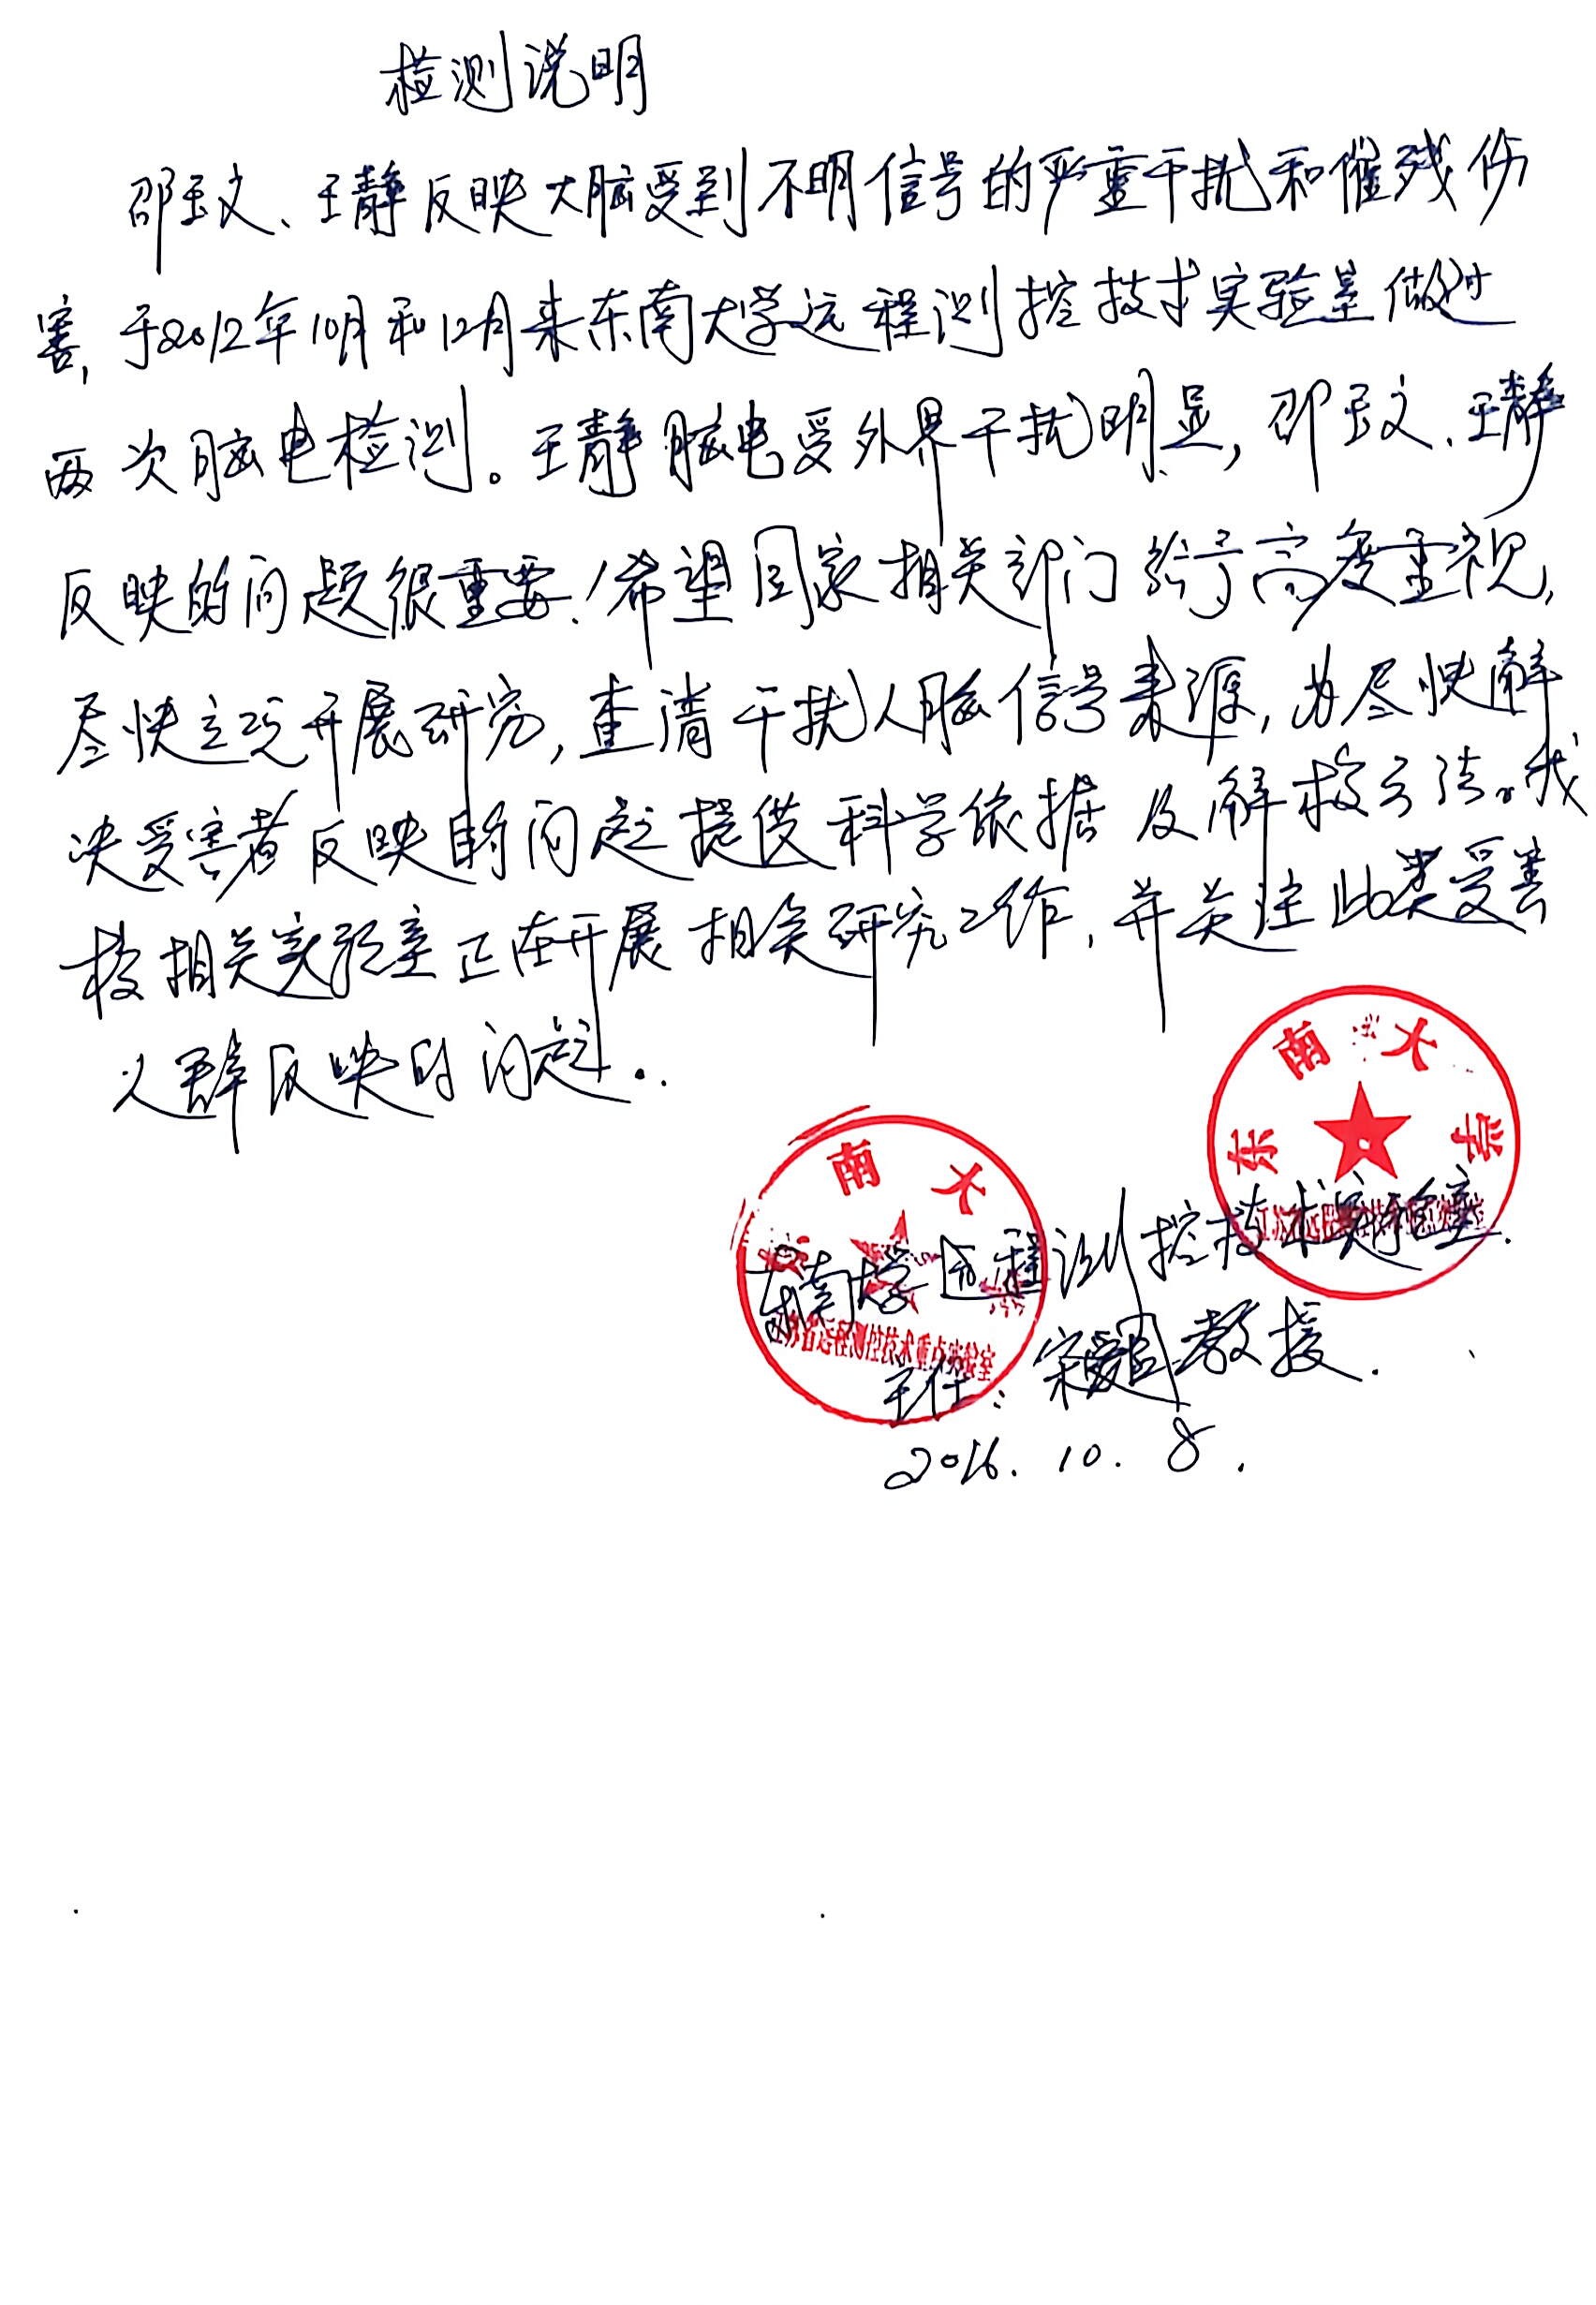 检测说明
邵玉文、王静反映大脑受到不明信号的严重干扰和催残伤
害,于2012年10月和12月来东南大学远程测控技术实验室做过
两次脑电检测。王静脑电受外界干扰明显,邵玉文、王静
反映的问题很重要!希望国家相关部门给予高度重视,
尽快立项开展研究,查清干扰人脑信号来源,为尽快解
决受害者反映的问题提供科学依据及解救方法。我
校相关实验室正在开展相关研究工作,并关注此类受害
人群反映的问题..
东南大学
南大
东南大学远程测控技术实验室.
江苏省远程测控技术重点实验室
主任:宋爱国教授.
2016.10.8.